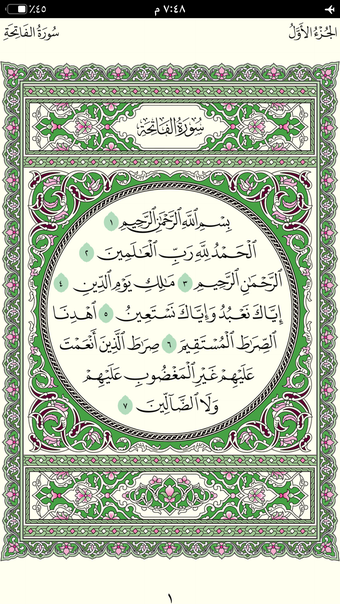 ٪٤٥ ٧:٤٨ م
الجُزْءُ الأَوَّلُ سُورَةُ الفَاتِحَةِ
سُورَةُ الفَاتِحَةِ
بِسْمِ ٱللَّهِ ٱلرَّحْمَٰنِ ٱلرَّحِيمِ ١
ٱلْحَمْدُ لِلَّهِ رَبِّ ٱلْعَٰلَمِينَ ٢
ٱلرَّحْمَٰنِ ٱلرَّحِيمِ ٣ مَٰلِكِ يَوْمِ ٱلدِّينِ ٤
إِيَّاكَ نَعْبُدُ وَإِيَّاكَ نَسْتَعِينُ ٥ ٱهْدِنَا
ٱلصِّرَٰطَ ٱلْمُسْتَقِيمَ ٦ صِرَٰطَ ٱلَّذِينَ أَنْعَمْتَ
عَلَيْهِمْ غَيْرِ ٱلْمَغْضُوبِ عَلَيْهِمْ
وَلَا ٱلضَّآلِّينَ ٧
١